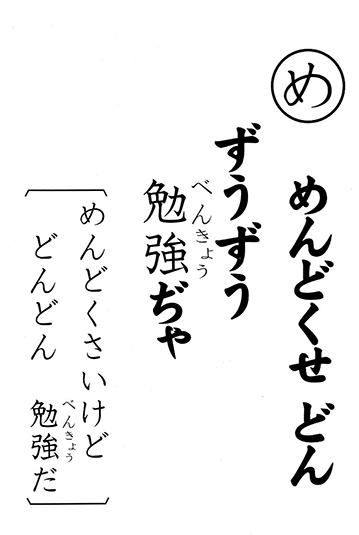 め
めんどくせ どん
ずうずう
勉強ぢゃ
べんきょう
めんどくさいけど
どんどん 勉強だ
べんきょう